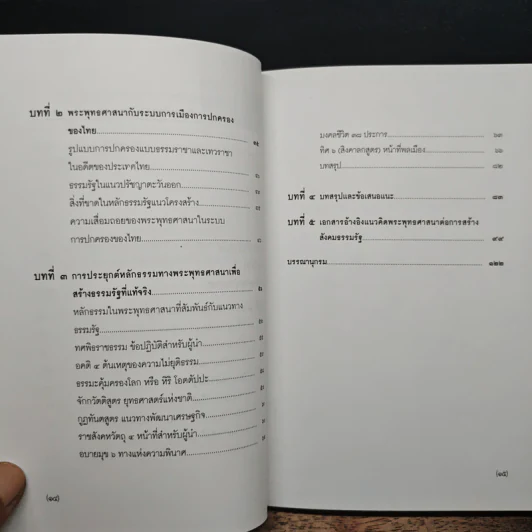 บทที่ ๒ พระพุทธศาสนากับระบบการเมืองการปกครอง
ของไทย
รูปแบบการปกครองแบบธรรมราชาและเทวราชา
ในอดีตของประเทศไทย
ธรรมรัฐในแนวปรัชญาตะวันออก
สิ่งที่ขาดในหลักธรรมรัฐแนวโครงสร้าง
ความเสื่อมถอยของพระพุทธศาสนาในระบบ
การปกครองของไทย
บทที่ ๓ การประยุกต์หลักธรรมทางพระพุทธศาสนาเพื่อ
สร้างธรรมรัฐที่แท้จริง
หลักธรรมในพระพุทธศาสนาที่สัมพันธ์กับแนวทาง
ธรรมรัฐ
ทศพิธราชธรรม ข้อปฏิบัติสำหรับผู้นำ
อคติ ๔ ต้นเหตุของความไม่ยุติธรรม
ธรรมะคุ้มครองโลก หรือ หิริ โอตตัปปะ
จักกวัตติสูตร ยุทธศาสตร์แห่งชาติ
กูฏทันตสูตร แนวทางพัฒนาเศรษฐกิจ
ราชสังคหวัตถุ ๔ หน้าที่สำหรับผู้นำ
อบายมุข ๖ ทางแห่งความพินาศ
(๑๔)
มงคลชีวิต ๓๘ ประการ ๖๓
ทิศ ๖ (สิงคาลกสูตร) หน้าที่พลเมือง
บทสรุป ๘๒
บทที่ ๔ บทสรุปและข้อเสนอแนะ ๘๓
บทที่ ๕ เอกสารอ้างอิงแนวคิดพระพุทธศาสนาต่อการสร้าง
สังคมธรรมรัฐ ๙๙
บรรณานุกรม ๑๒๒
(๑๕)